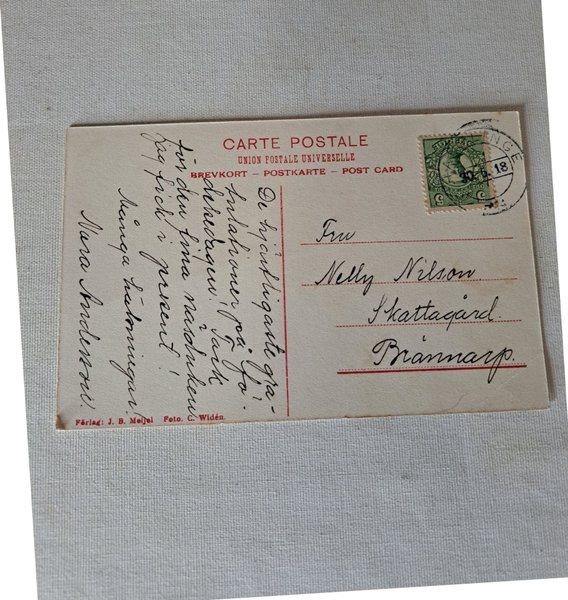 CARTE POSTALE
UNION POSTALE UNIVERSELLE
BREVKORT – POSTKARTE – POST CARD
30. 5. 18
De hjärtligaste gra-
tulationer på fö-
delsedagen! Tack
för den fina näsduken
jag fick i present!
Många hälsningar!
Maria Andersson.
Fru
Nelly Nilson.
Skattagård.
Brännarp.
Förlag: J. B. Meijel Foto. C. Widén.